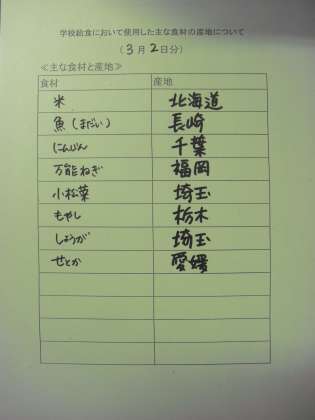 学校給食において使用した主な食材の産地について
（3月2日分）
≪主な食材と産地≫
食材 産地
米 北海道
魚（まだい） 長崎
にんじん 千葉
万能ねぎ 福岡
小松菜 埼玉
もやし 栃木
しょうが 埼玉
せとか 愛媛